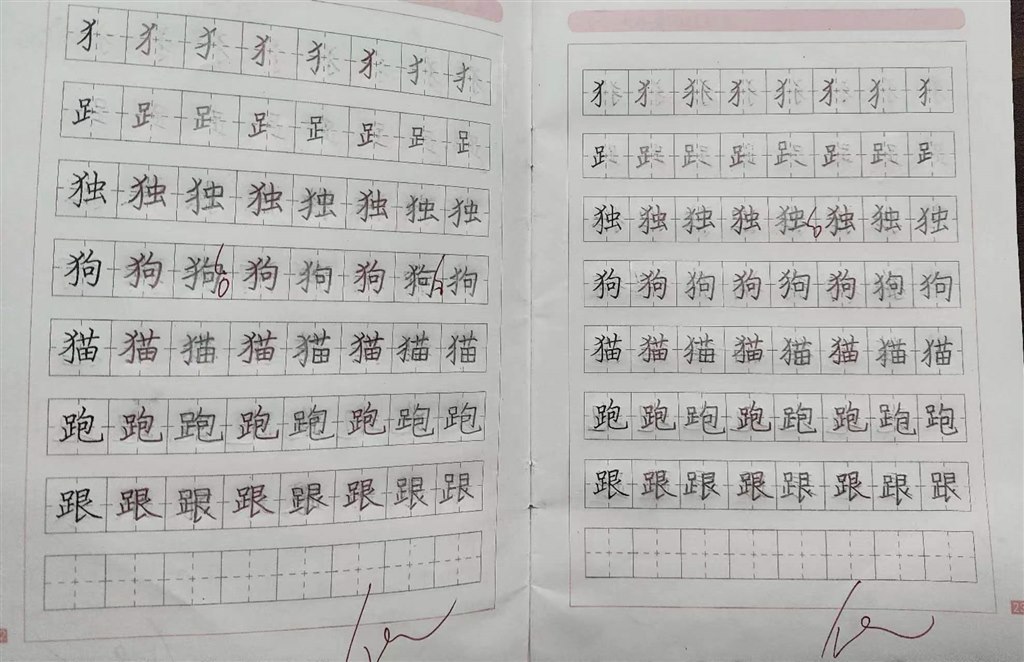 犭犭犭犭犭犭犭犭
𧾷𧾷𧾷𧾷𧾷𧾷𧾷𧾷
独独独独独独独独
狗狗狗狗狗狗狗狗
猫猫猫猫猫猫猫猫
跑跑跑跑跑跑跑跑
跟跟跟跟跟跟跟跟
犭犭犭犭犭犭犭犭
𧾷𧾷𧾷𧾷𧾷𧾷𧾷𧾷
独独独独独独独独
狗狗狗狗狗狗狗狗
猫猫猫猫猫猫猫猫
跑跑跑跑跑跑跑跑
跟跟跟跟跟跟跟跟